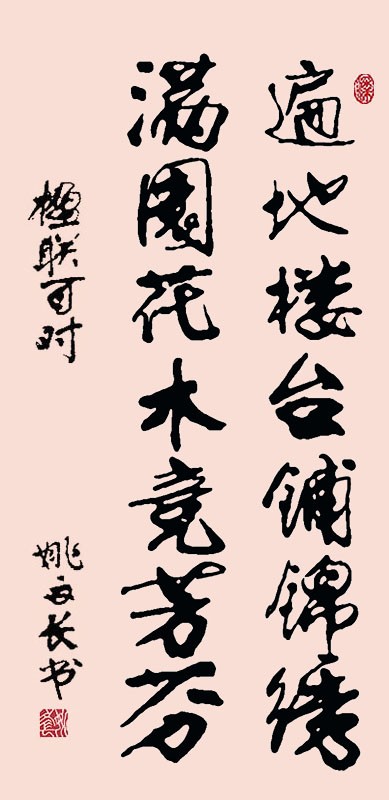 遍地楼台铺锦绣
满園花木竞芳芬
楹联对
姚长书